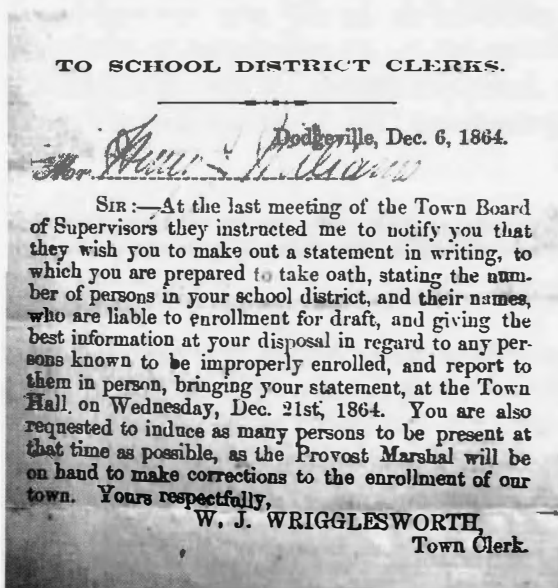 TO SCHOOL DISTRICT CLERKS.
Dodgeville, Dec. 6, 1864.
Mr. Williams
SIR :—At the last meeting of the Town Board
of Supervisors they instructed me to notify you that
they wish you to make out a statement in writing, to
which you are prepared to take oath, stating the num-
ber of persons in your school district, and their names,
who are liable to enrollment for draft, and giving the
best information at your disposal in regard to any per-
sons known to be improperly enrolled, and report to
them in person, bringing your statement, at the Town
Hall. on Wednesday, Dec. 21st, 1864. You are also
requested to induce as many persons to be present at
that time as possible, as the Provost Marshal will be
on hand to make corrections to the enrollment of our
town. Yours respectfully,
W. J. WRIGGLESWORTH,
Town Clerk.